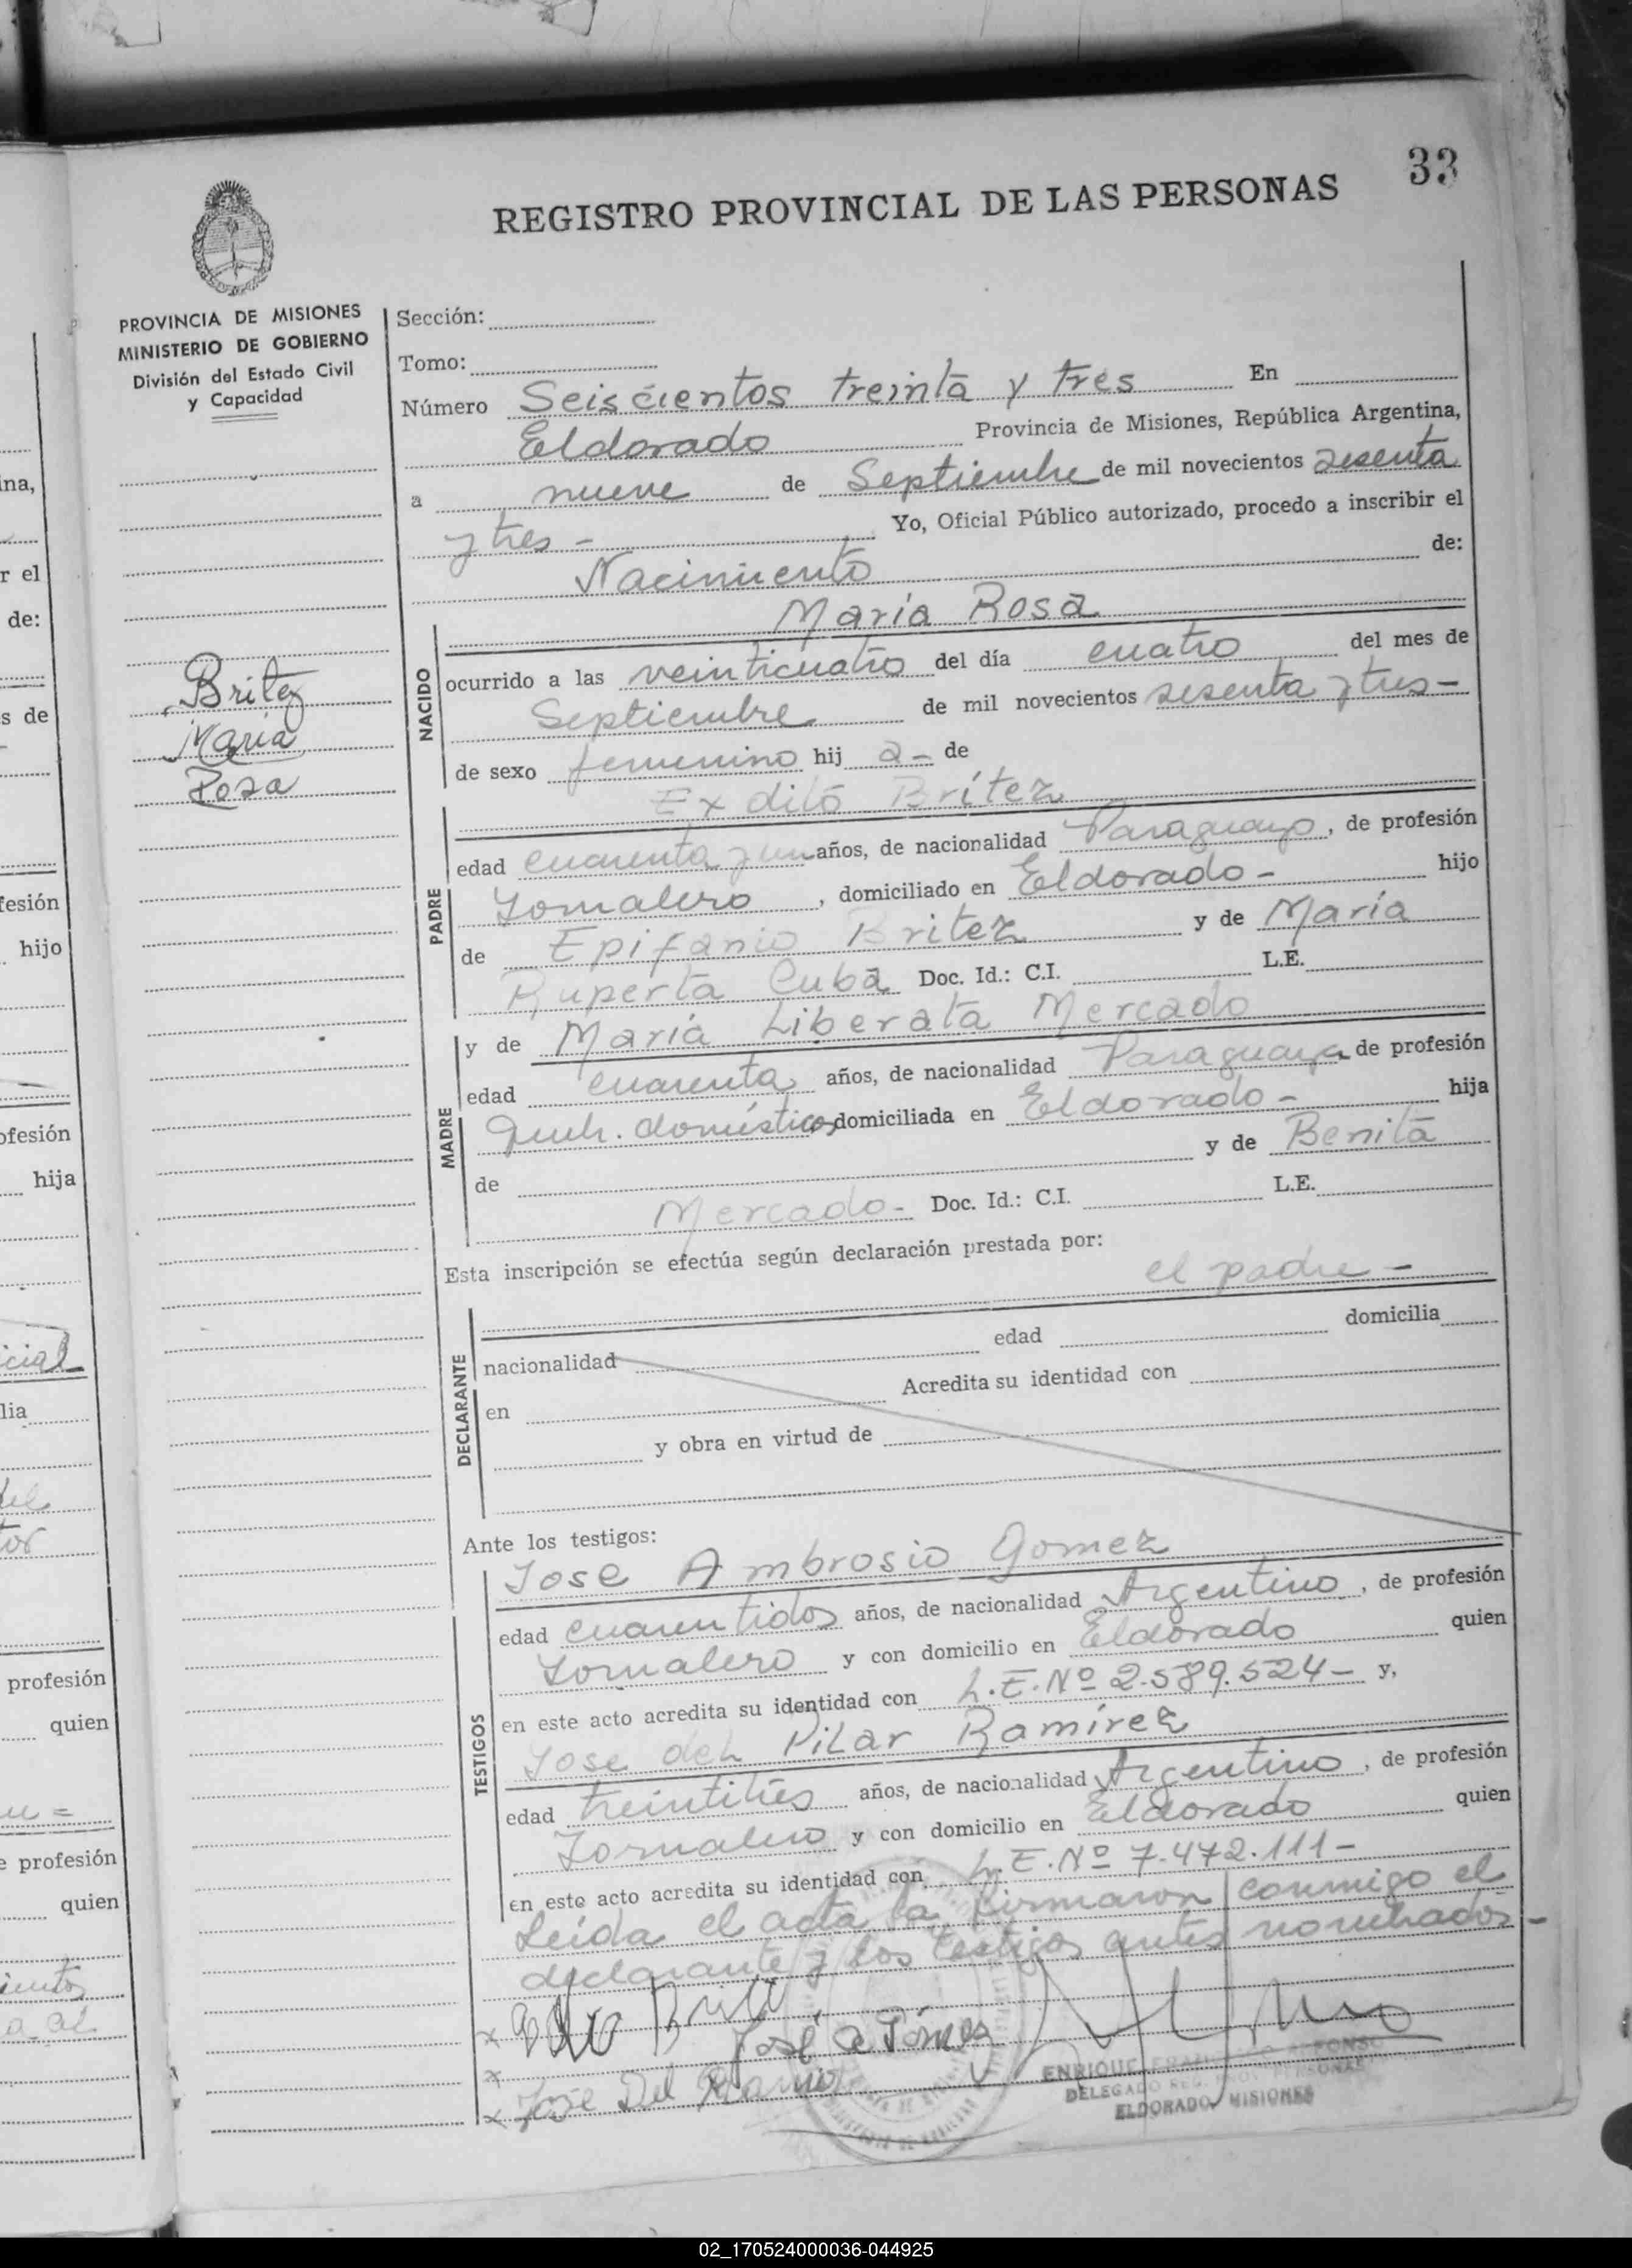 33
REGISTRO PROVINCIAL DE LAS PERSONAS
PROVINCIA DE MISIONES
MINISTERIO DE GOBIERNO
División del Estado Civil
y Capacidad
Britez
Maria
Rosa
Sección:
Tomo:
Número Seiscientos treinta y tres En
Eldorado Provincia de Misiones, República Argentina,
a nueve de Septiembre de mil novecientos sesenta
y tres - Yo, Oficial Público autorizado, procedo a inscribir el
Nacimiento de:
María Rosa
NACIDO
ocurrido a las veinticuatro del día cuatro del mes de
Septiembre de mil novecientos sesenta y tres -
de sexo femenino hij a - de
Exdito Britez
PADRE
edad cuarenta y un años, de nacionalidad Paraguayo, de profesión
Jornalero, domiciliado en Eldorado - hijo
de Epifanio Britez y de María
Ruperta Cuba Doc. Id.: C.I. L.E.
MADRE
y de María Liberata Mercado
edad cuarenta años, de nacionalidad Paraguaya de profesión
Queh. domésticos domiciliada en Eldorado - hija
de y de Benita
Mercado - Doc. Id.: C.I. L.E.
Esta inscripción se efectúa según declaración prestada por:
el padre -
DECLARANTE
nacionalidad edad domicilia
en Acredita su identidad con
y obra en virtud de
Ante los testigos:
TESTIGOS
Jose Ambrosio Gomez
edad cuarentidos años, de nacionalidad Argentino, de profesión
Jornalero y con domicilio en Eldorado quien
en este acto acredita su identidad con L.E. Nº 2.589.524 - y,
Jose del Pilar Ramírez
edad treintitrés años, de nacionalidad Argentino, de profesión
Jornalero y con domicilio en Eldorado quien
en este acto acredita su identidad con L.E. Nº 7.472.111 -
Leída el acta la firmaron conmigo el
declarante y los testigos antes nombrados -
José a Gómez
Jose Del
ENRIQUE
DELEGADO
ELDORADO MISIONES
ina,
r el
de:
s de
fesión
hijo
ofesión
hija
icial
lia
del
tor
profesión
quien
e profesión
quien
02_170524000036-044925